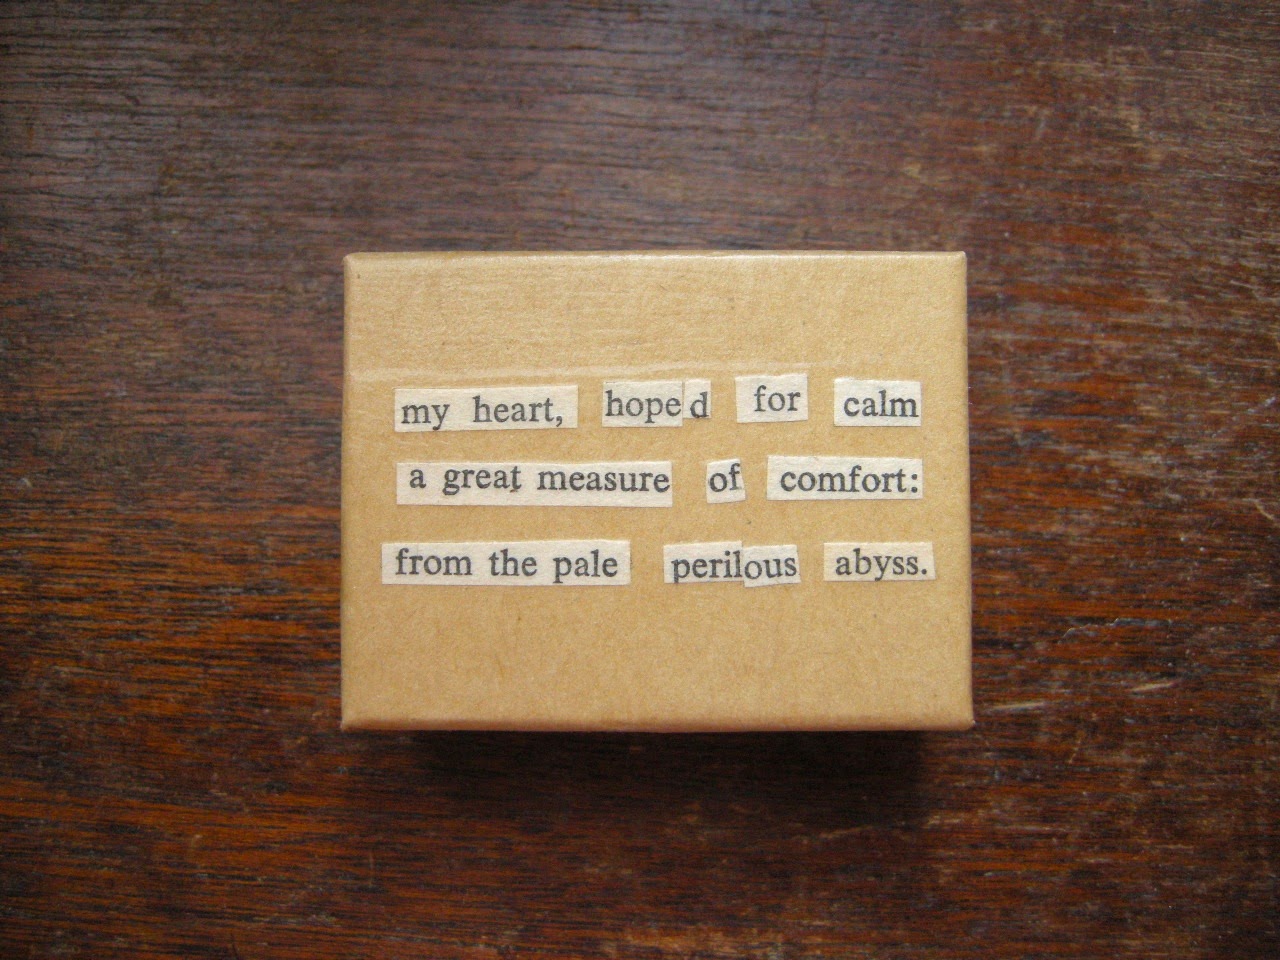 my heart, hoped for calm
a great measure of comfort:
from the pale perilous abyss.